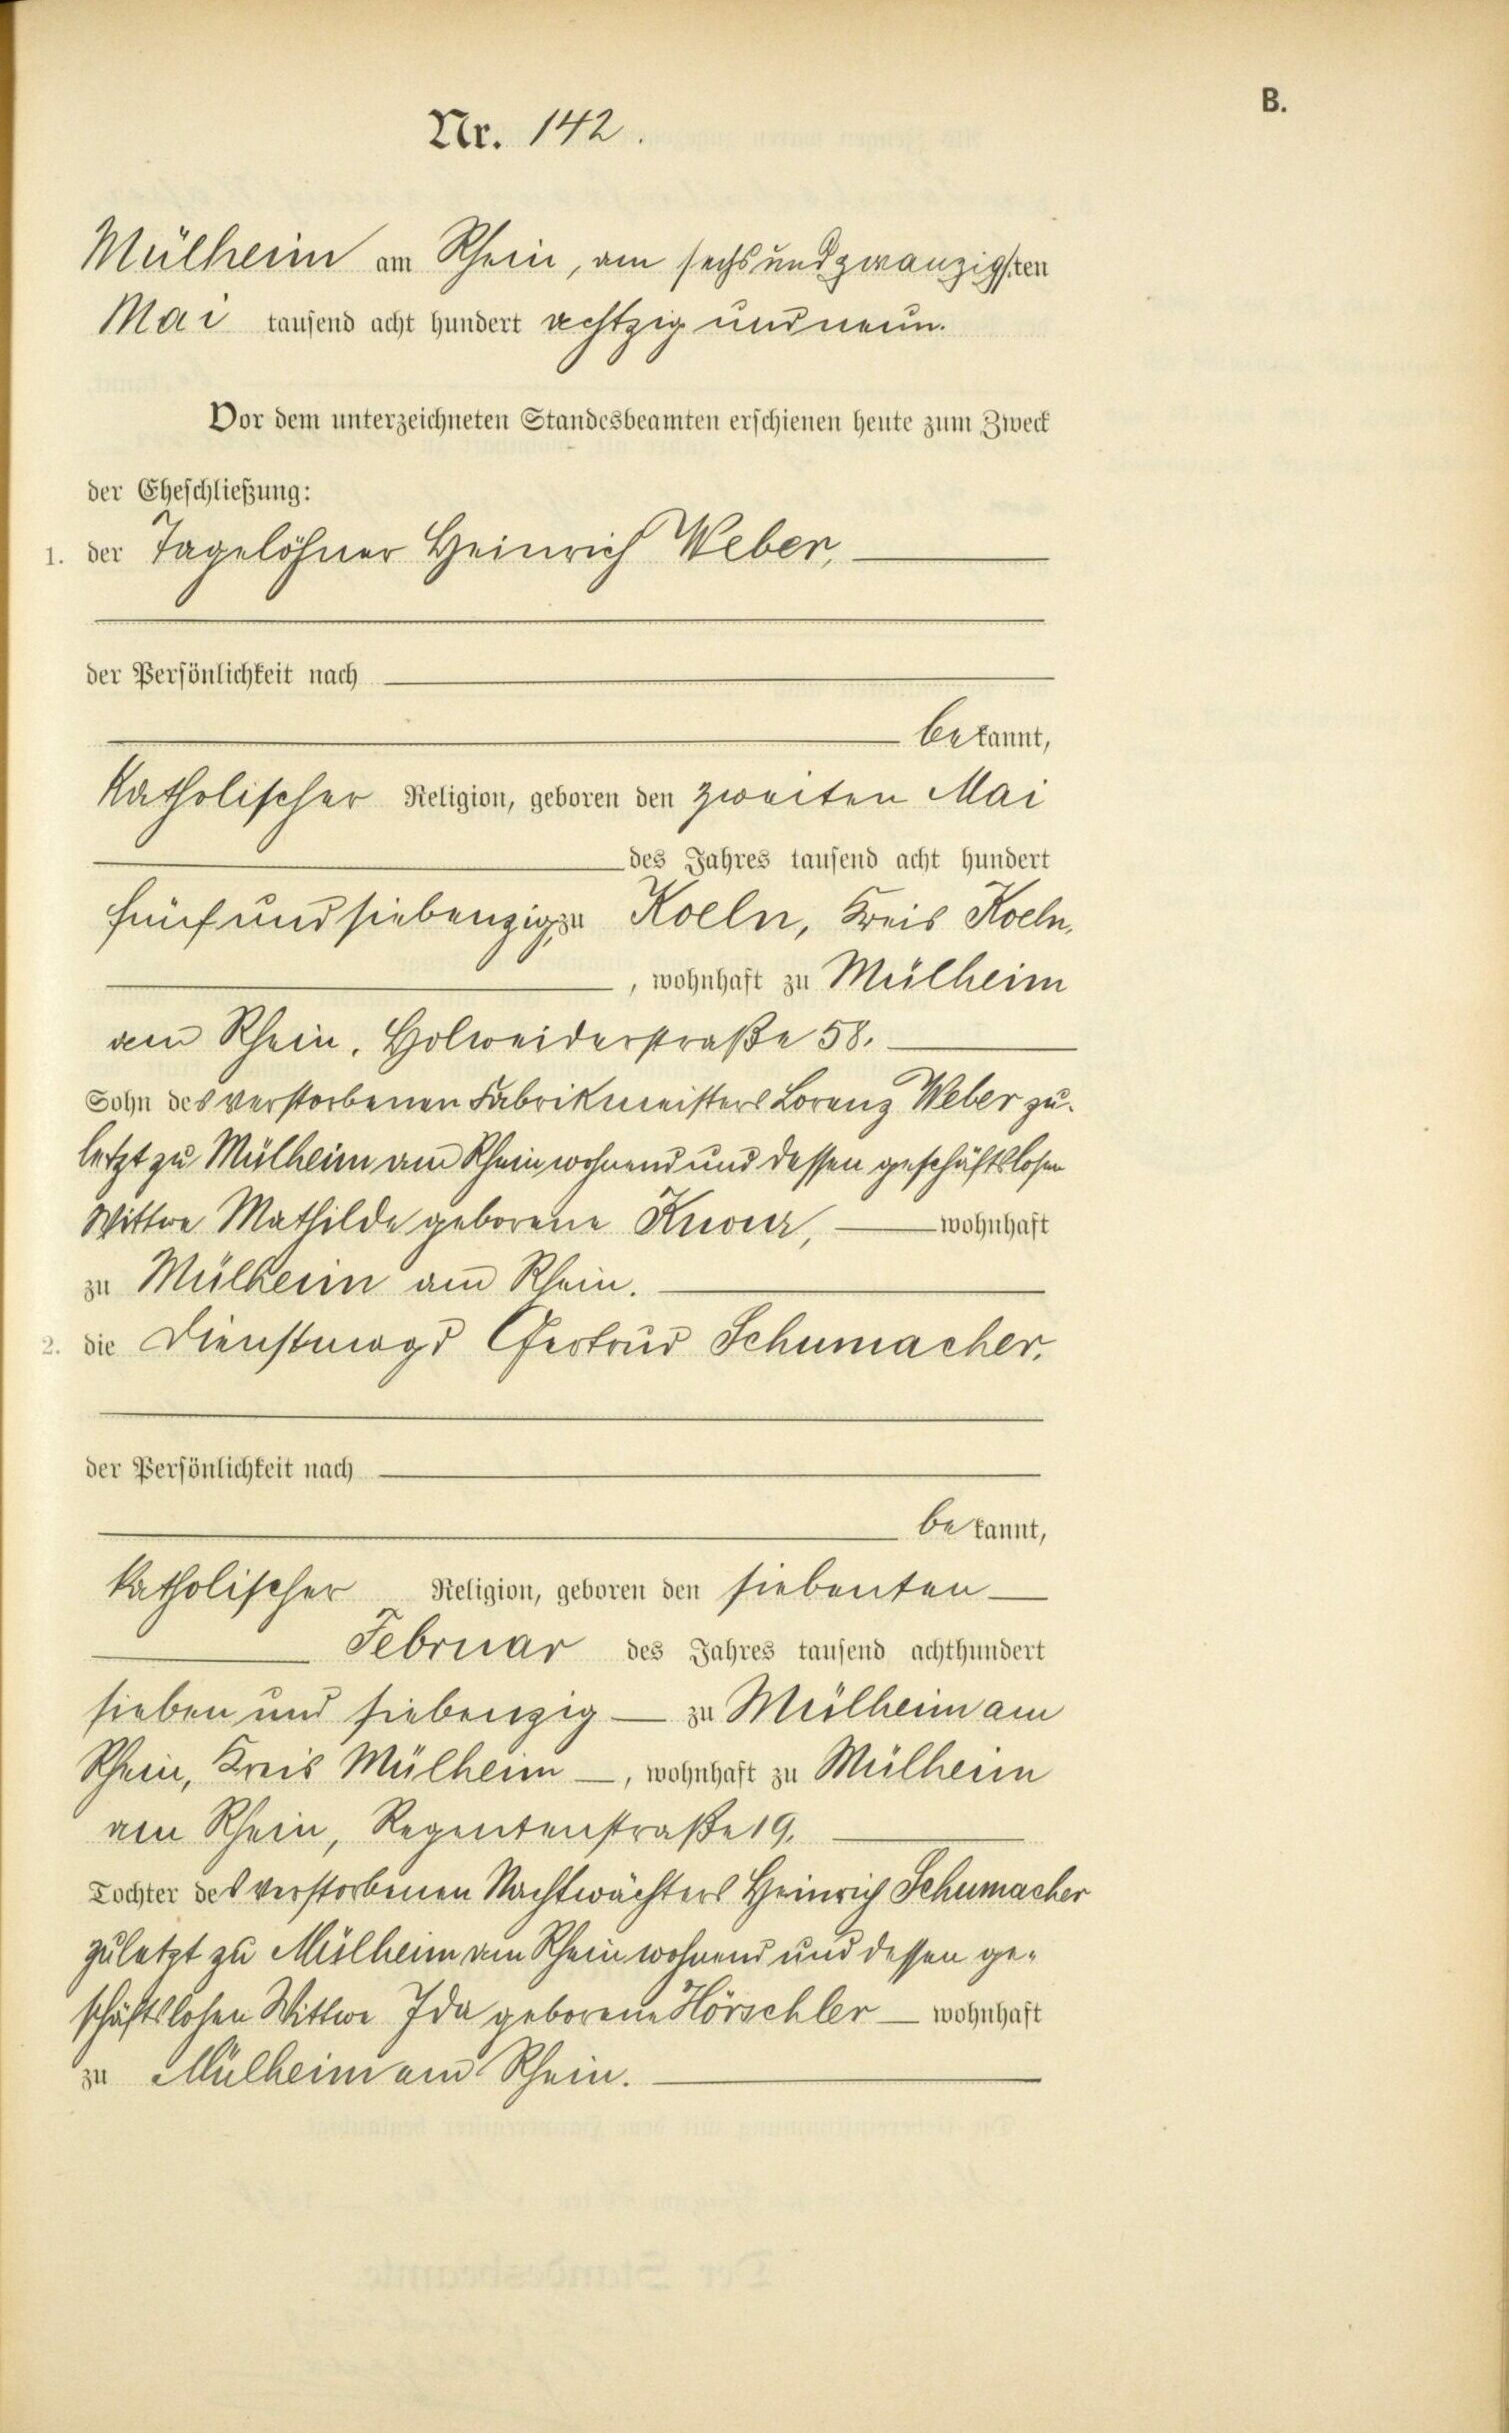 B.
Nr. 142.
Mülheim am Rhein, am sechsundzwanzigsten
Mai tausend acht hundert achtzig und neun.
Vor dem unterzeichneten Standesbeamten erschienen heute zum Zweck
der Eheschließung:
1. der Tagelöhner Heinrich Weber,
der Persönlichkeit nach
bekannt,
katholischer Religion, geboren den zweiten Mai
des Jahres tausend acht hundert
fünf und siebenzig, zu Koeln, Kreis Koeln,
, wohnhaft zu Mülheim
am Rhein, Holweiderstraße 58.
Sohn des verstorbenen Fabrikmeisters Lorenz Weber zu-
letzt zu Mülheim am Rhein wohnend und dessen geschäftslosen
Wittwe Mathilde geborene wohnhaft
zu Mülheim am Rhein.
2. die Dienstmagd Gertrud Schumacher,
der Persönlichkeit nach
bekannt,
katholischer Religion, geboren den siebenten
Februar des Jahres tausend achthundert
sieben und siebenzig zu Mülheim am
Rhein, Kreis Mülheim, wohnhaft zu Mülheim
am Rhein, Regentenstraße 19.
Tochter des verstorbenen Nachtwächters Heinrich Schumacher
zuletzt zu Mülheim am Rhein wohnend und dessen ge-
schäftslosen Wittwe Ida geborene Hörschler wohnhaft
zu Mülheim am Rhein.